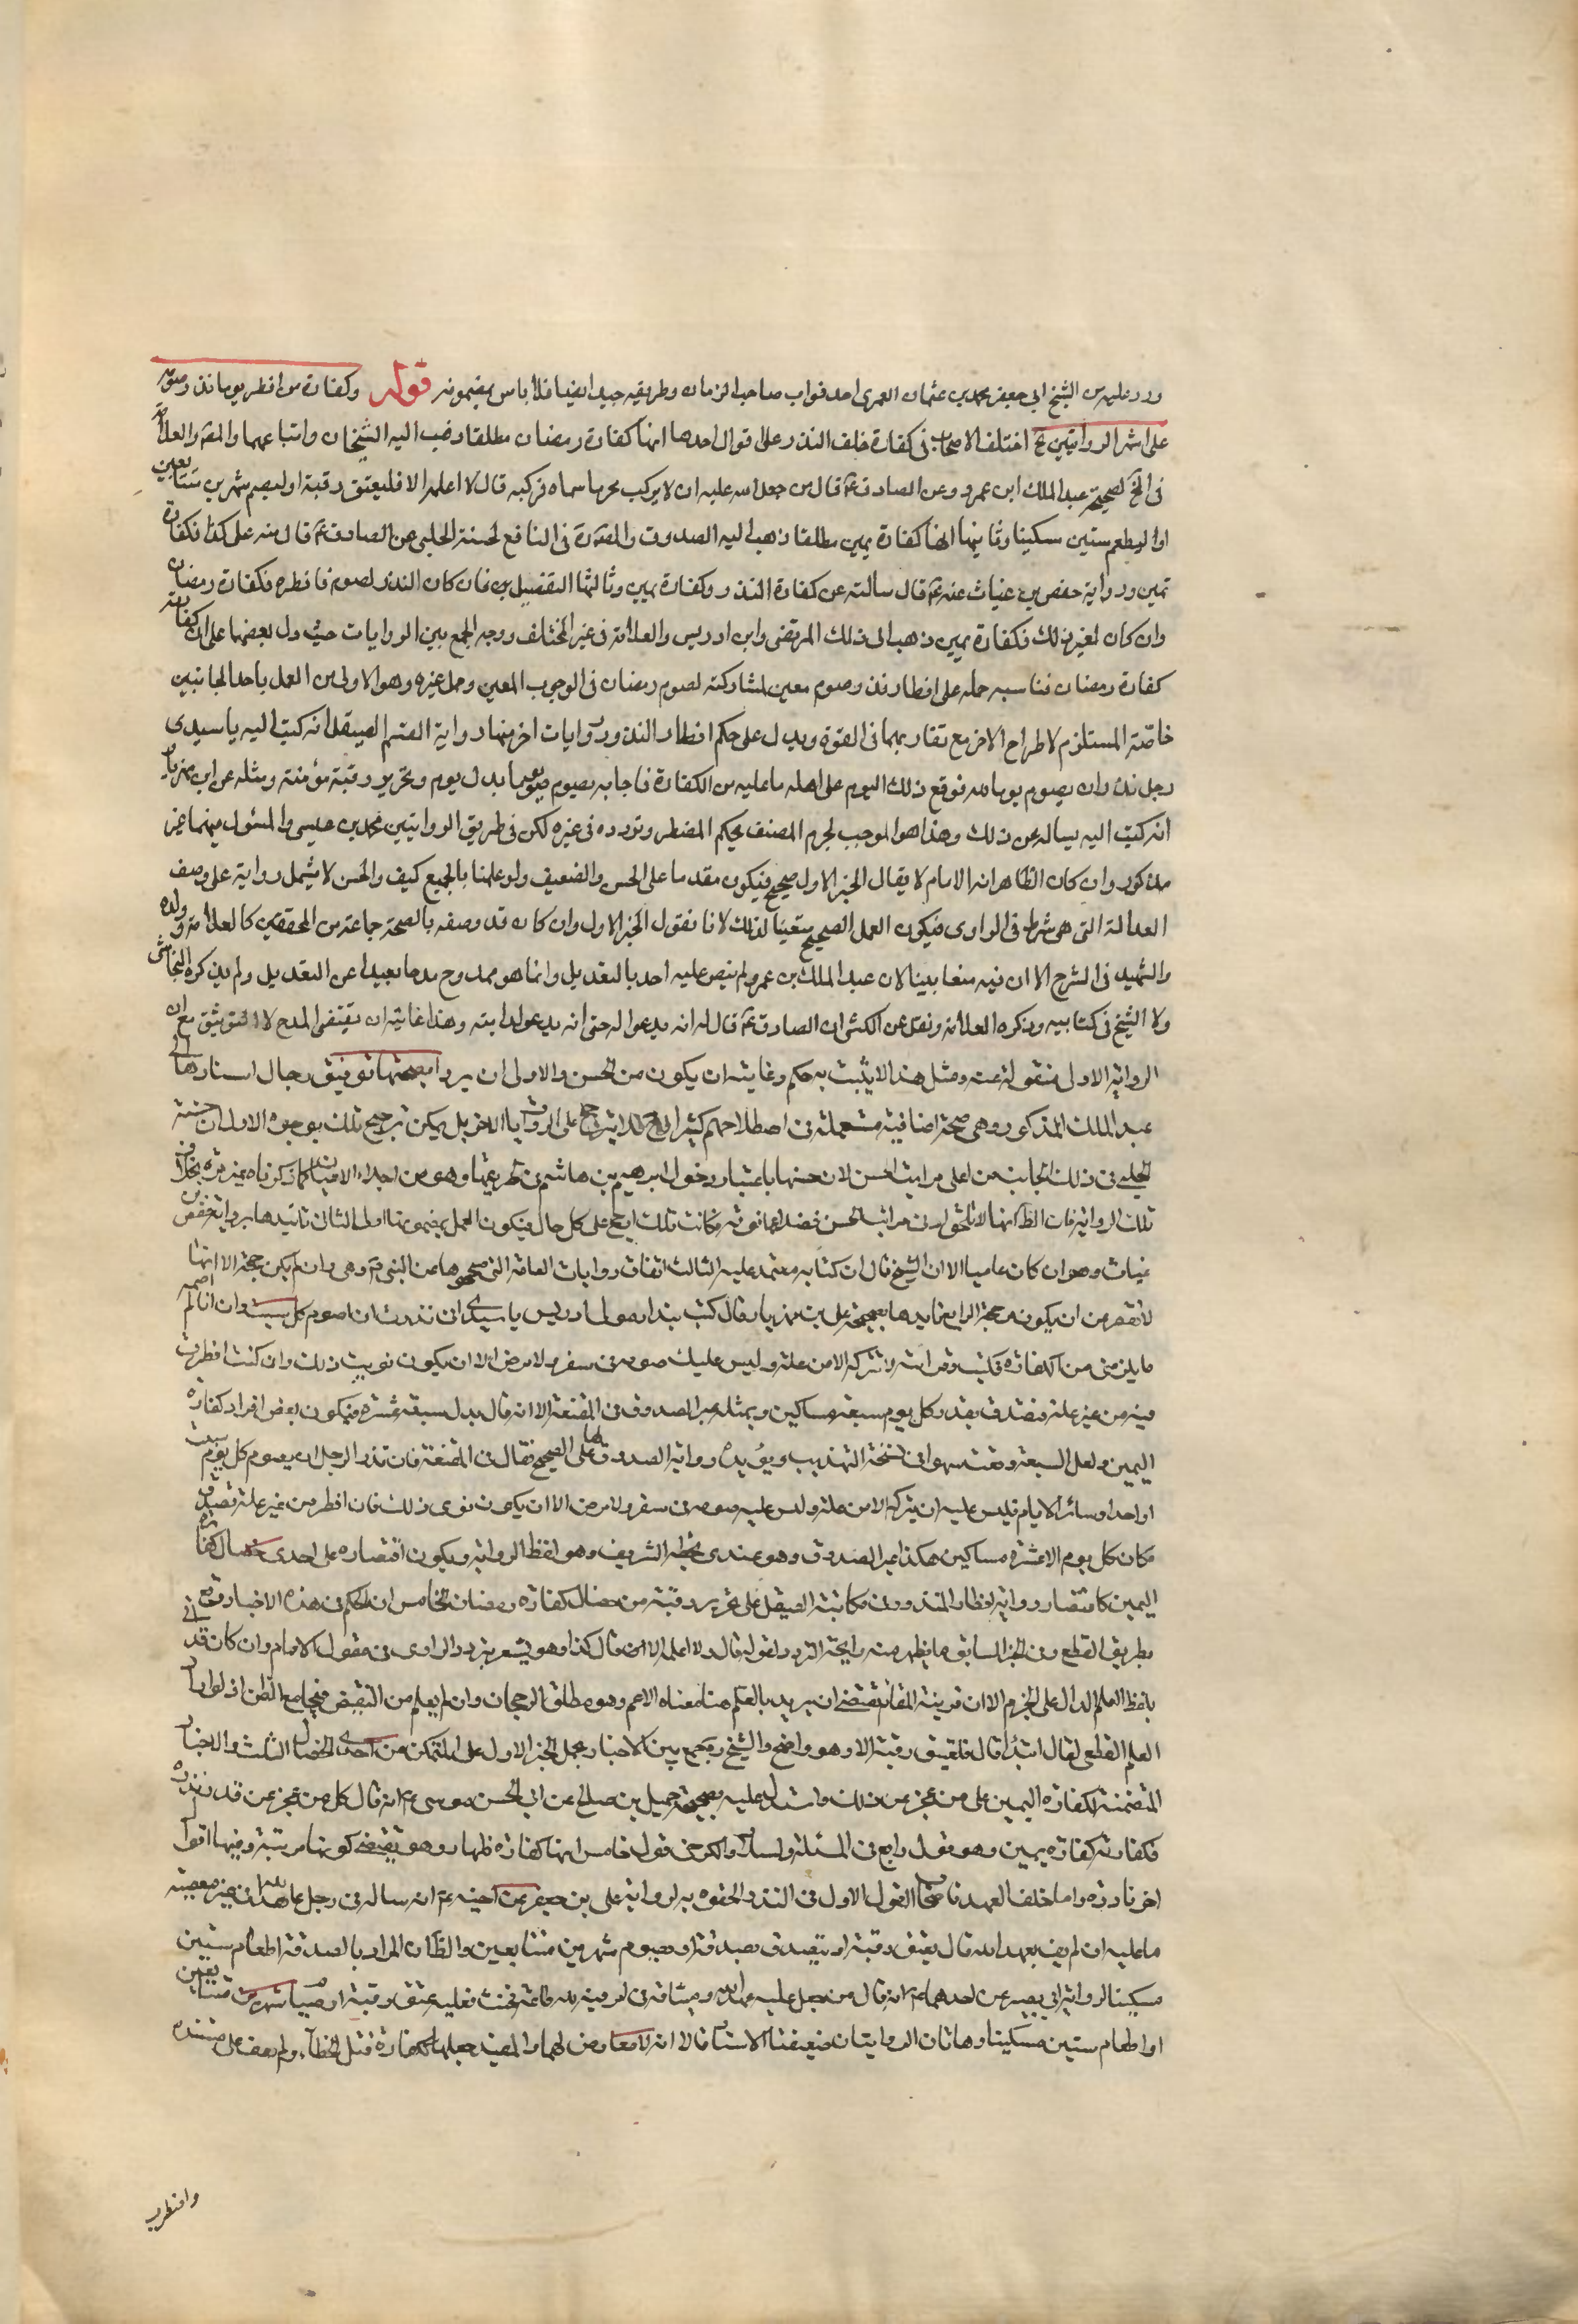 ورد عليه من الشيخ ابى جعفر محمد بن عثمان العمرى احد نواب صاحب الزمان وطريقه جيد ايضا فلا باس بمضمونه قوله وكفارة من افطر يوما نذر صومه
على اشهر الروايتين الخ اختلف الاصحاب فى كفارة خلف النذر على اقوال احدها انها كفارة رمضان مطلقا ذهب اليه الشيخان واتباعهما والمصنف والعلامة
فى المخ لصحيحة عبد الملك ابن عمرو وعن الصادق ع قال من جعل لله عليه ان لا يركب محرما سماه فركبه قال لا اعلمه الا فليعتق رقبة او ليصم شهرين متتابعين
او ليطعم ستين مسكينا وثانيها انها كفارة يمين مطلقا ذهب اليه الصدوق والمصنف فى النافع لحسنة الحلبى عن الصادق ع قال منه على كذا فكفارة
يمين ورواية حفص بن غياث عنه ع قال سالته عن كفارة النذر وكفارة يمين وثالثها التفصيل بن فان كان النذر لصوم فافطره فكفارة رمضان
وان كان لغير ذلك فكفارة يمين ذهب الى ذلك المرتضى وابن ادريس والعلامة فى غير المختلف ووجه الجمع بين الروايات حيث دل بعضها على ان كفارته
كفارة رمضان فناسبه حمله على افطار نذر وصوم معين لمشاركته لصوم رمضان فى الوجوب المعين وحمل غيره وهو الاولى من العمل باحد الجانبين
خاصة المستلزم لاطراح الاخر مع تقاربهما فى القوة ويدل على حكم افطار النذر روايات اخر منها رواية القسم الصيقل انه كتب اليه يا سيدى
رجل نذر ان يصوم يوما لله فوقع ذلك اليوم على اهله ما عليه من الكفارة فاجابه يصوم يوما بدل يوم وتحرير رقبة مؤمنة ومثله عن ابن مهزيار
انه كتب اليه يساله عن ذلك وهذا هو الموجب لجزم المصنف بحكم المفطر وتردده فى غيره لكن فى طريق الروايتين محمد بن عيسى والمسئول منهما غير
مذكور وان كان الظاهر انه الامام لا يقال الخبر الاول صحيح فيكون مقدما على الحسن والضعيف ولو عملنا بالجميع كيف والحسن لا يشمل رواية على وصف
العدالة التى هى شرط فى الراوى فيكون العمل الصحيح متعينا لذلك لانا نقول الخبر الاول وان كان قد وصفه بالصحة جماعة من المحققين كالعلامة وولده
والشهيد فى الشرح الا ان فيه منعا بينا لان عبد الملك بن عمرو لم ينص عليه احد بالتعديل وانما هو ممدوح مدحا بعيدا عن التعديل ولم يذكره النجاشى
ولا الشيخ فى كتابيه وذكره العلامة ونقل عن الكشى ان الصادق ع قال له انه يدعو له حتى انه يدعو لدابته وهذا غايته ان يقتضى المدح لا التوثيق مع ان
الرواية الاولى منقولة عنه ومثل هذا لا يثبت به حكم وغايته ان يكون من الحسن والاولى ان يريد بصحتها توثيق رجال اسنادها الى
عبد الملك المذكور وهى صحة اضافية مستعملة فى اصطلاحهم كثيرا على الروايات الاخر بل يمكن ترجيح تلك بوجوه الاول ان حسنة
الحلبى فى ذلك الجانب من اعلى مراتب الحسن لان حسنها باعتبار دخول ابرهيم بن هاشم فى طريقها وهو من اجلاء الاعيان كما ذكرناه غير مرة بخلاف
تلك الرواية فان الظ انها لا تلحق ادنى مراتب الحسن فضلا عما فوقه فكانت تلك ارجح على كل حال فيكون العمل بمضمونها اولى الثانى تائيدها برواية حفص بن
غياث وهو ان كان عاميا الا ان الشيخ قال ان كتابه معتمد عليه الثالث اتفاق روايات العامة التى صححوها عن النبى ص وهى وان لم يكن حجة الا انها
لا تقصر من ان يكون مرجحة الرابع تايدها بصحيحة على بن مهزيار قال كتب بندار مولى ادريس يا سيدى انى نذرت ان اصوم كل سبت وان انا لم اصمه
ما يلزمنى من الكفارة فكتب وقراته لا تتركه الا من علة وليس عليك صومه فى سفر ولا مرض الا ان يكون نويت ذلك وان كنت افطرت
فيه من غير علة فتصدق بقدر كل يوم سبعة مساكين وبمثله عبر الصدوق فى المقنعة الا انه قال بدل سبعة عشرة فيكون بعض افراد كفارة
اليمين ولعل السبعة وقعت سهوا فى نسخة التهذيب ويؤيده رواية الصدوق لها على الصحيح فقال فى المقنعة فان نذر الرجل ان يصوم كل يوم سبت
او احد او سائر الايام فليس عليه ان يتركه الا من علة وليس عليه صومه فى سفر ولا مرض الا ان يكون نوى ذلك فان افطر من غير علة تصدق
مكان كل يوم الا عشرة مساكين هكذا عبر الصدوق وهو عندى بخطه الشريف وهو لفظ الرواية ويكون اقتصاره على احدى خصال كفارة
اليمين كاقتصار رواية افطار المنذور فى مكاتبة الصيقل على تحرير رقبة من خصال كفارة رمضان الخامس ان الحكم فى هذه الاخبار وقع
بطريق القطع وفى الخبر السابق ما يظهر منه رايحة التردد لقوله قال ولا اعلمه الا ان قال كذا وهو يشعر بتردد الراوى فى مقول الامام وان كان قد اتى
بلفظ العلم الدال على الجزم الا ان قرينة المقام تقتضى ان يريد بالعلم هنا معناه الاعم وهو مطلق الرجحان وان لم يعلم من النقيض فيجامع الظن اذ لو اراد
العلم القطعى لقال ابتداء قال فليعتق رقبة الا وهو واضح والشيخ ره جمع بين الاخبار بحمل الخبر الاول على المتمكن من احدى الخصال الثلث والاخبار
المتضمنة لكفارة اليمين على من عجز عن ذلك واستدل عليه بصحيحة جميل بن صالح عن ابى الحسن موسى ع انه قال كل من عجز عن نذر نذره
فكفارته كفارة يمين وهو قول رابع فى المسئلة ولسلار والكراجى قول خامس انها كفارة ظهار وهو يقتضى كونها مرتبة وفيها اقوال
اخر نادرة واما خلف العهد فاصحاب القول الاول فى النذر الحقوه به لرواية على بن جعفر عن اخيه ع انه ساله فى رجل عاهد الله فى غير معصية
ما عليه ان لم يف بعهد الله قال يعتق رقبة او يتصدق بصدقة او يصوم شهرين متتابعين والظ ان المراد بالصدقة اطعام ستين
مسكينا لرواية ابى بصير عن احدهما ع انه قال من جعل عليه عهد الله وميثاقه فى امر فيه لله طاعة فحنث فعليه عتق رقبة او صيام شهرين متتابعين
او اطعام ستين مسكينا وهاتان الروايتان ضعيفتا الاسناد الا انه لا معارض لهما والمفيد جعلها ككفارة قتل الخطاء ولم يقف على مستنده